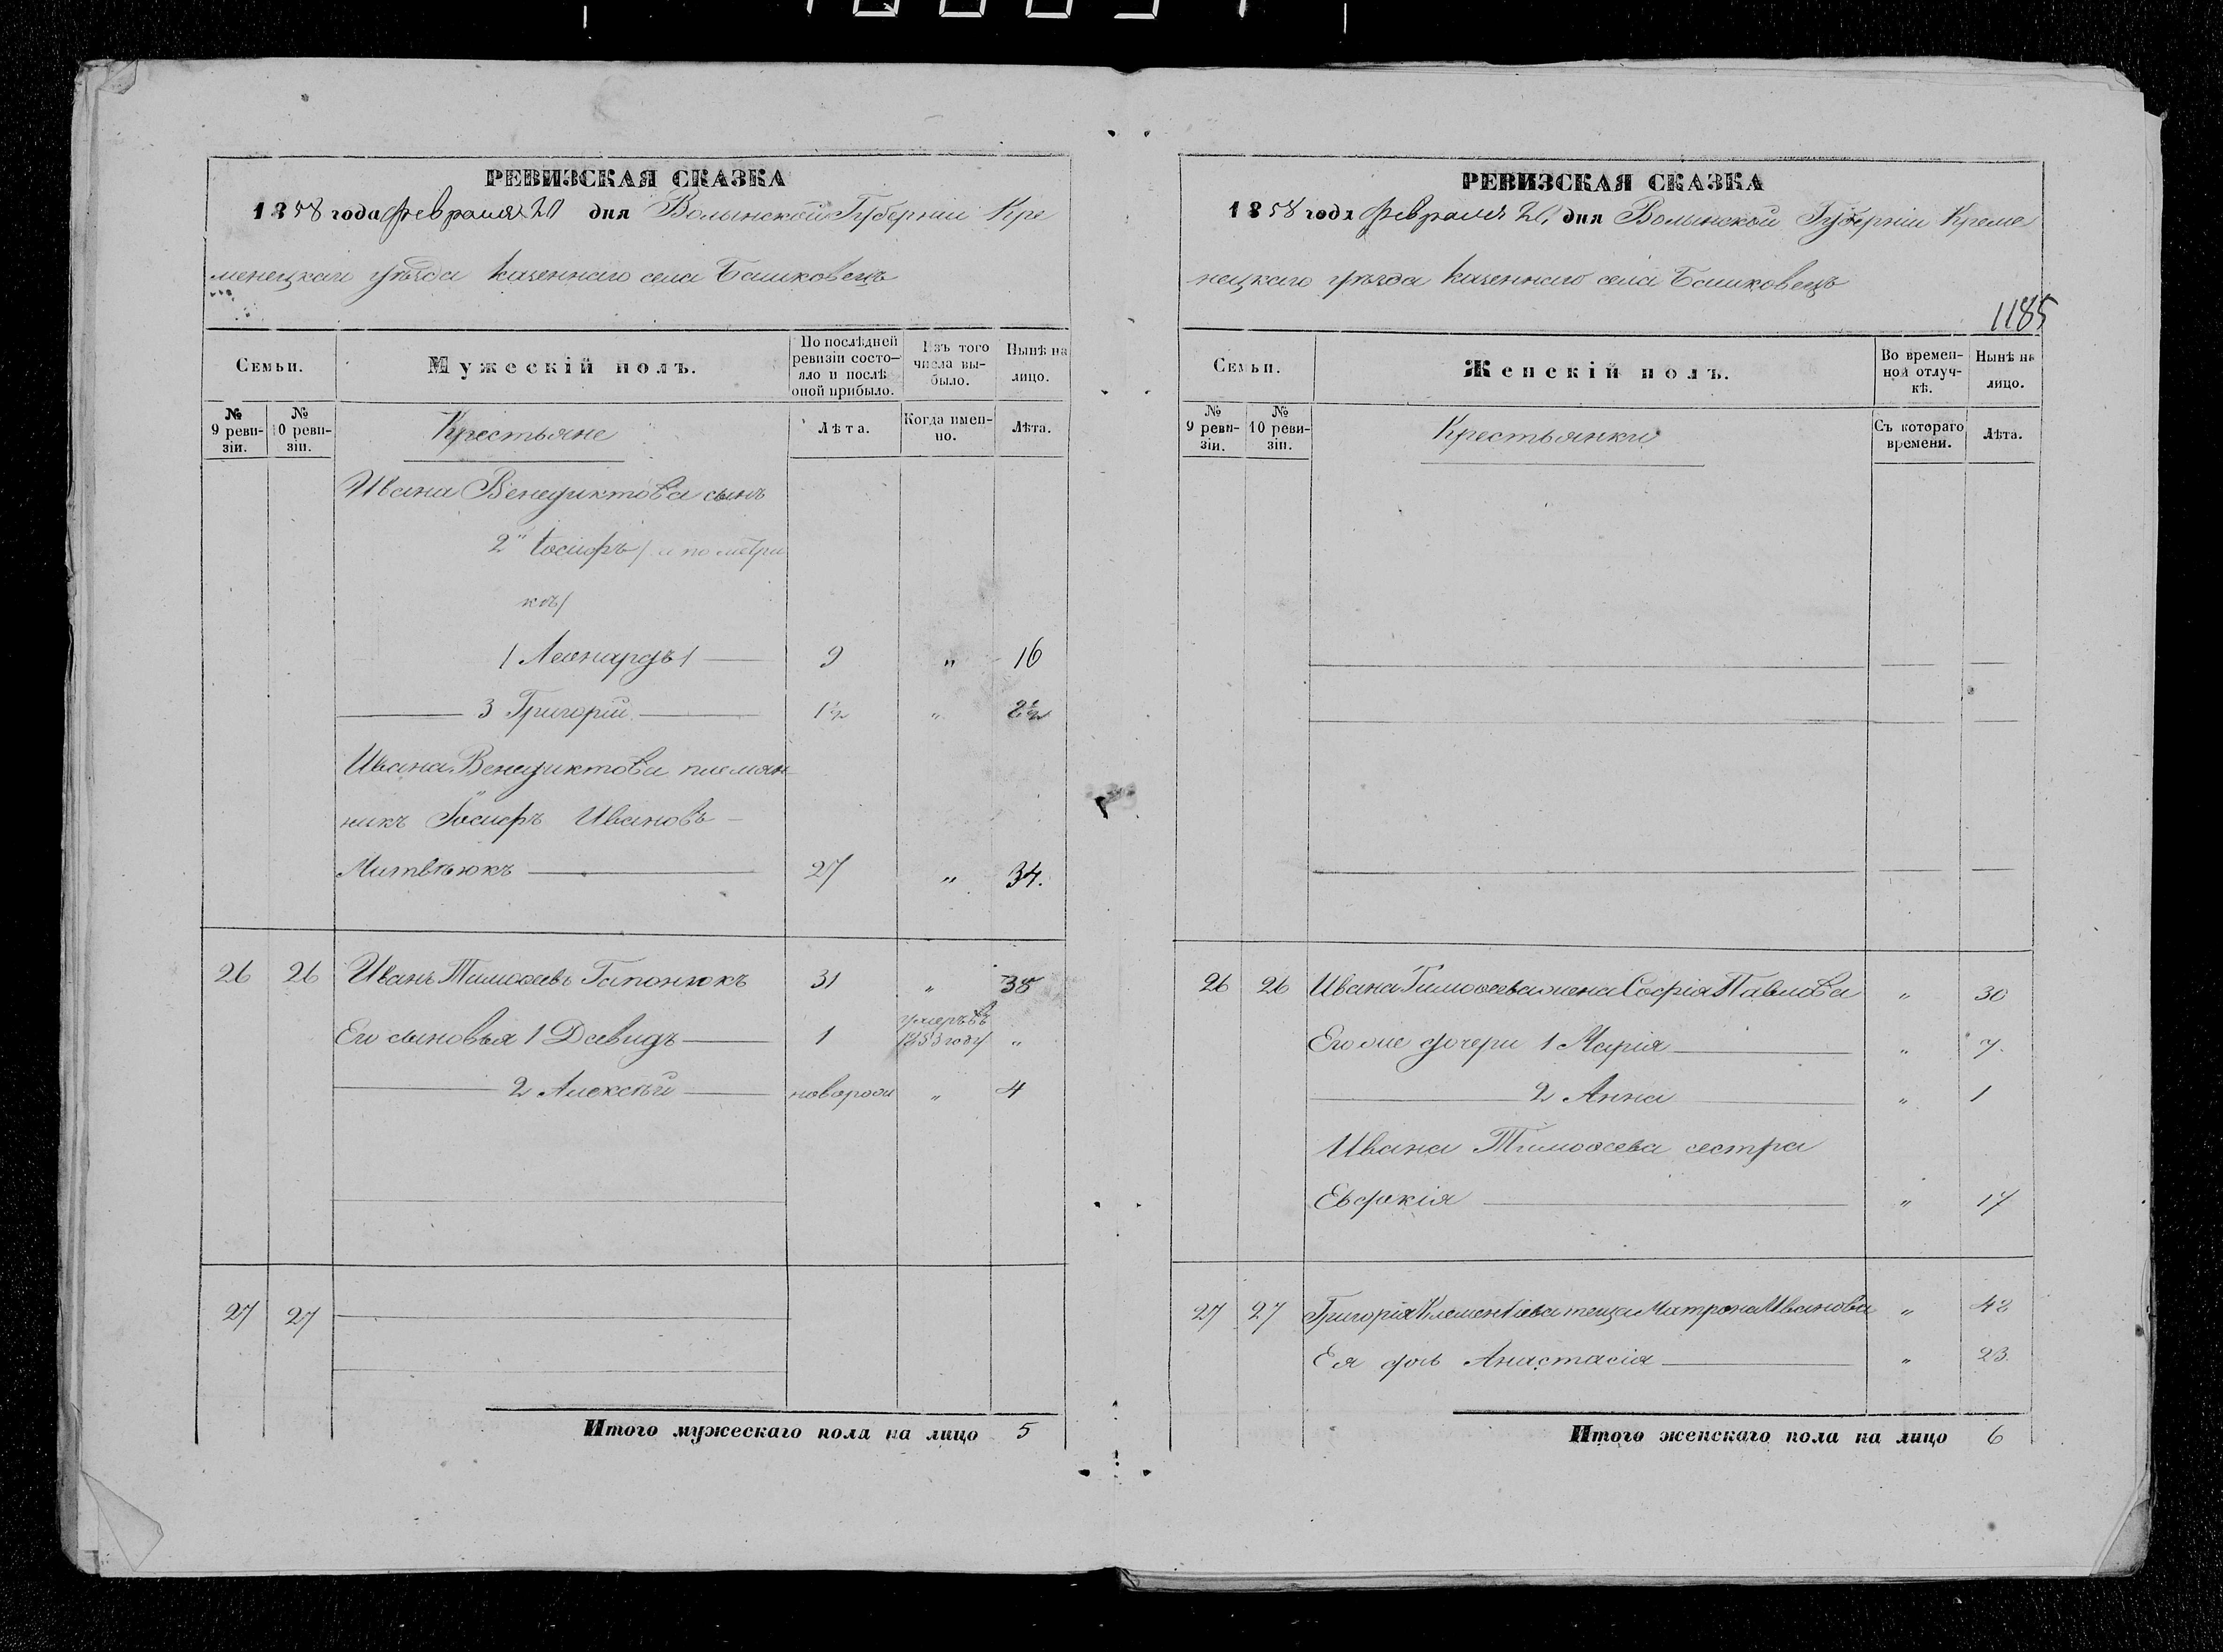 РЕВИЗСКАЯ СКАЗКА
1858 года Февраля 20 дня Волынской Губерніи Кре
менецкаго уѣзда казеннаго села Башковецъ
Семьи.
Мужескій полъ.
По послѣдней ревизіи состояло и послѣ оной прибыло.
Изъ того числа выбыло.
Нынѣ на лицо.
№ 9 ревизіи.
№ 10 ревизіи.
Крестьяне
Лѣта.
Когда именно.
Лѣта.
Ивана Венедиктова сынъ
2й Іосифъ / а по метри
кѣ /
/ Леонардъ / 9 " 16
3 Григорій 1½ " 8½
Ивана Венедиктова племян
никъ Іосифъ Ивановъ
Митвѣюкъ 27 " 34.
26 26 Иванъ Тимоѳеевъ Гапонюкъ 31 " 38
Его сыновья 1 Давидъ 1 умеръ въ 1853 году "
2 Алексѣй новорожд " 4
27 27
Итого мужескаго пола на лицо 5
РЕВИЗСКАЯ СКАЗКА
1858 года Февраля 20, дня Волынской Губерніи Креме
нецкаго уѣзда казеннаго села Башковецъ
1185
Семьи.
Женскій полъ.
Во временной отлучкѣ.
Нынѣ на лицо.
№ 9 ревизіи.
№ 10 ревизіи.
Крестьянки
Съ котораго времени.
Лѣта.
26 26 Ивана Тимоѳеева жена Софія Павлова " 30
Его же дочери 1 Марія " 7.
2 Анна " 1
Ивана Тимоѳеева сестра
Евдокія " 17
27 27 Григорія Клементіева теща Матрона Иванова " 48
Ея дочь Анастасія " 23.
Итого женскаго пола на лицо 6